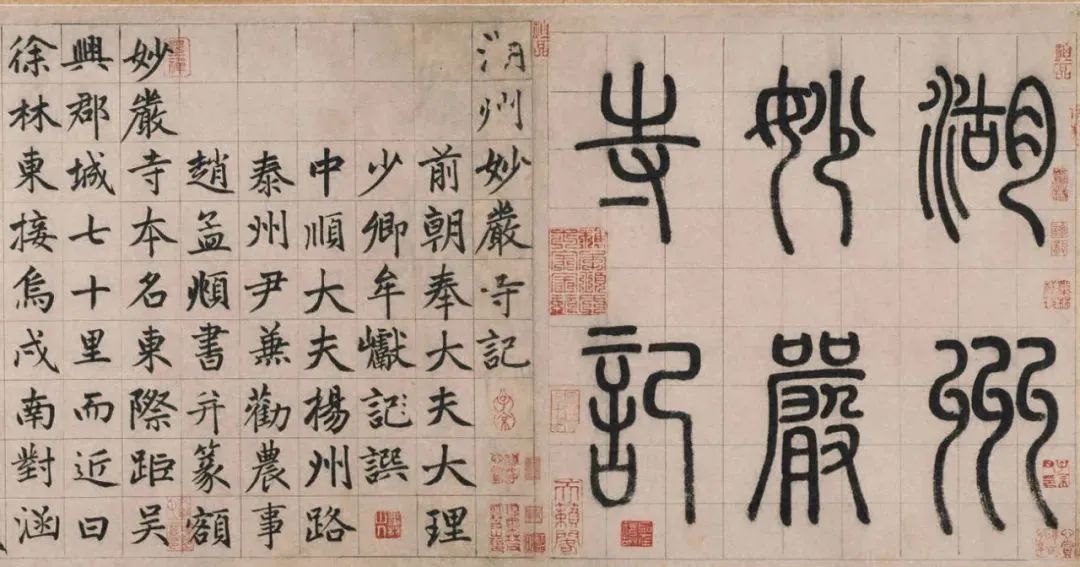 湖州
妙嚴
寺記
天籟閣
湖州妙嚴寺記
前朝奉大夫大理
少卿牟巘記譔
中順大夫揚州路
泰州尹兼勸農事
趙孟頫書并篆額
妙嚴寺本名東際距吳
興郡城七十里而近曰
徐林東接烏戍南對涵